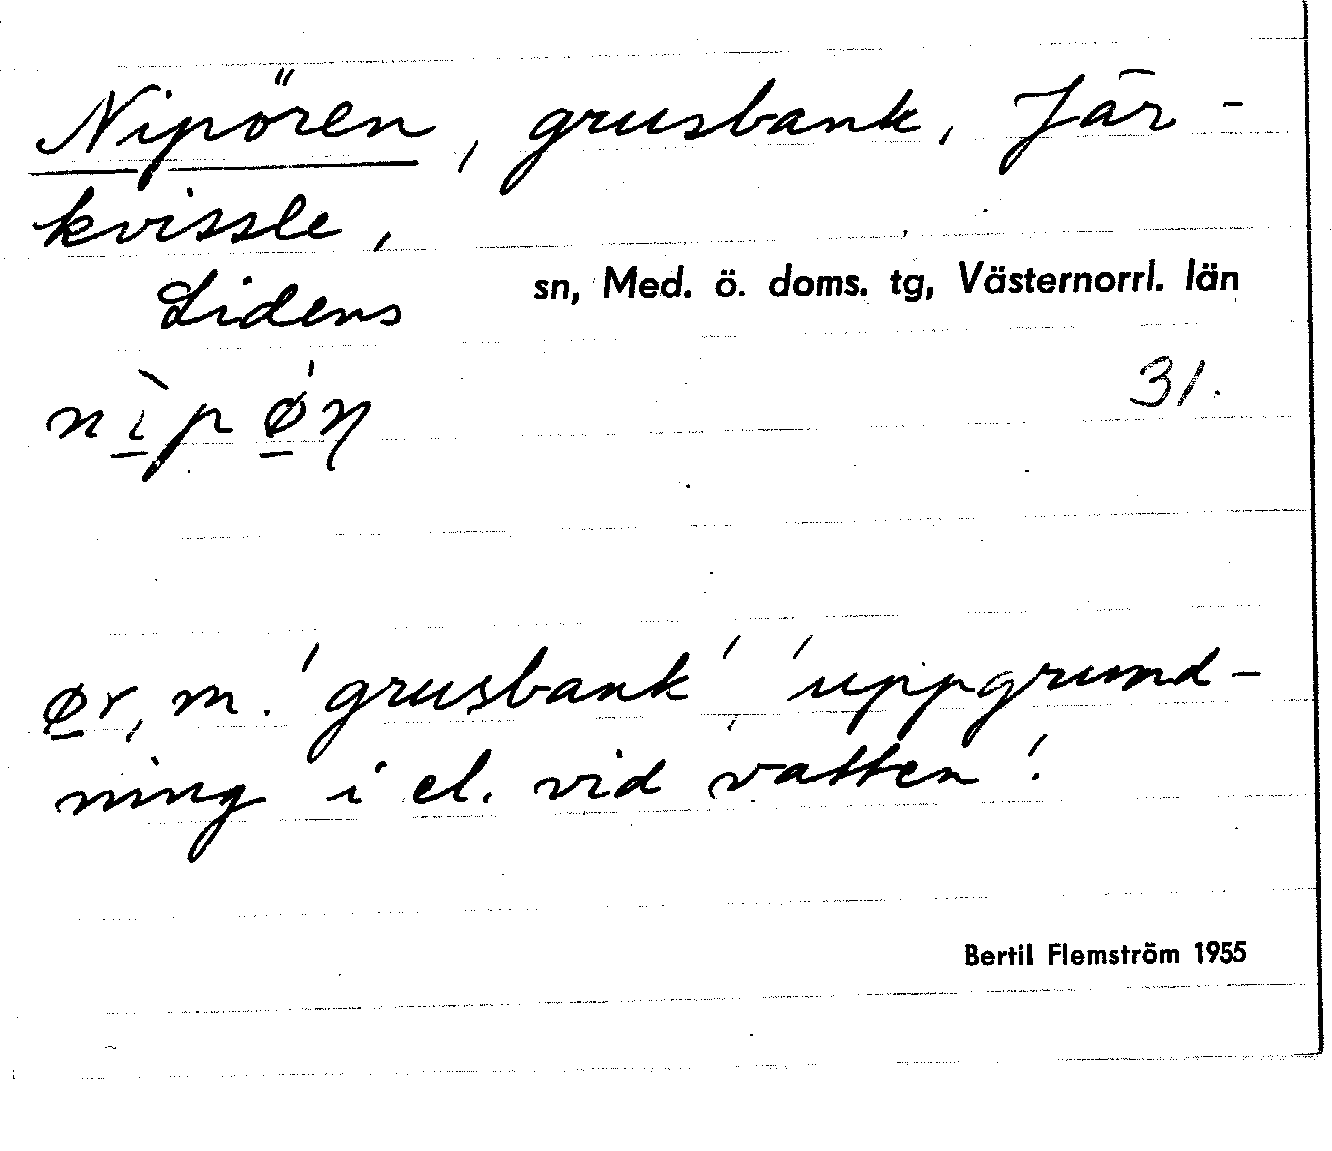 Nipören, grusbank, Jär-
kvissle,
Lidens sn, Med. ö. doms. tg, Västernorrl. län
nı̲̀pǿ̲ŋ 31.
ø̲r, m. 'grusbank', 'uppgrund-
ning i el. vid vatten'.
Bertil Flemström 1955